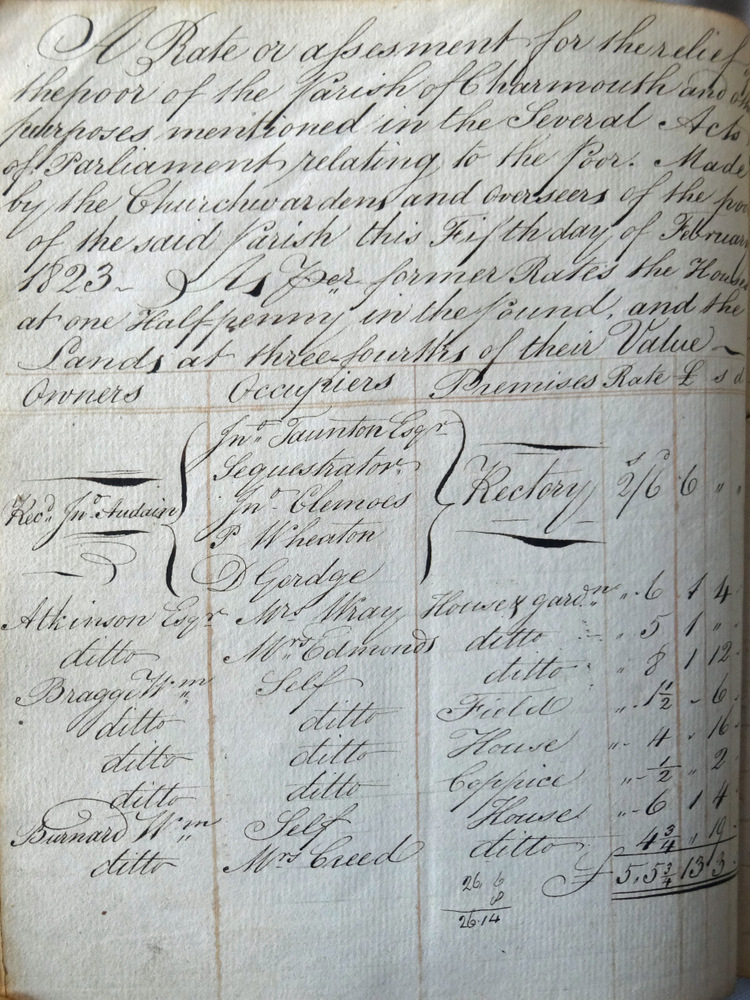 A Rate or assesment for the relief
the poor of the Parish of Charmouth and
purposes mentioned in the Several Acts
of Parliament relating to the Poor. Made
by the Churchwardens and overseers of the poo
of the said Parish this Fifth day of Februar
1823 As Per former Rates the House
at one Halfpenny in the pound, and the
Lands at three-fourths of their Value
Owners Occupiers Premises Rate £ s d
Jno. Taunton Esqr
Sequestrator
Recd. Jno. Audain Jno. Clemoes Rectory 2/6 6 " "
P Wheaton
D Gordge
Atkinson Esqr Mrs Wray House & gardn " 6 1 4
ditto Mrs Edmonds ditto " 5 1 "
Bragge Wm Self ditto " 8 1 12
ditto ditto Field " 1½ " 6
ditto ditto House " 4 " 16
ditto ditto Coppice " ½ " 2
Burnard Wm Self House " 6 1 4
ditto Mrs Creed ditto 4¾ " 19
£ 5.5¾ 13 3
26 6
8
26.14